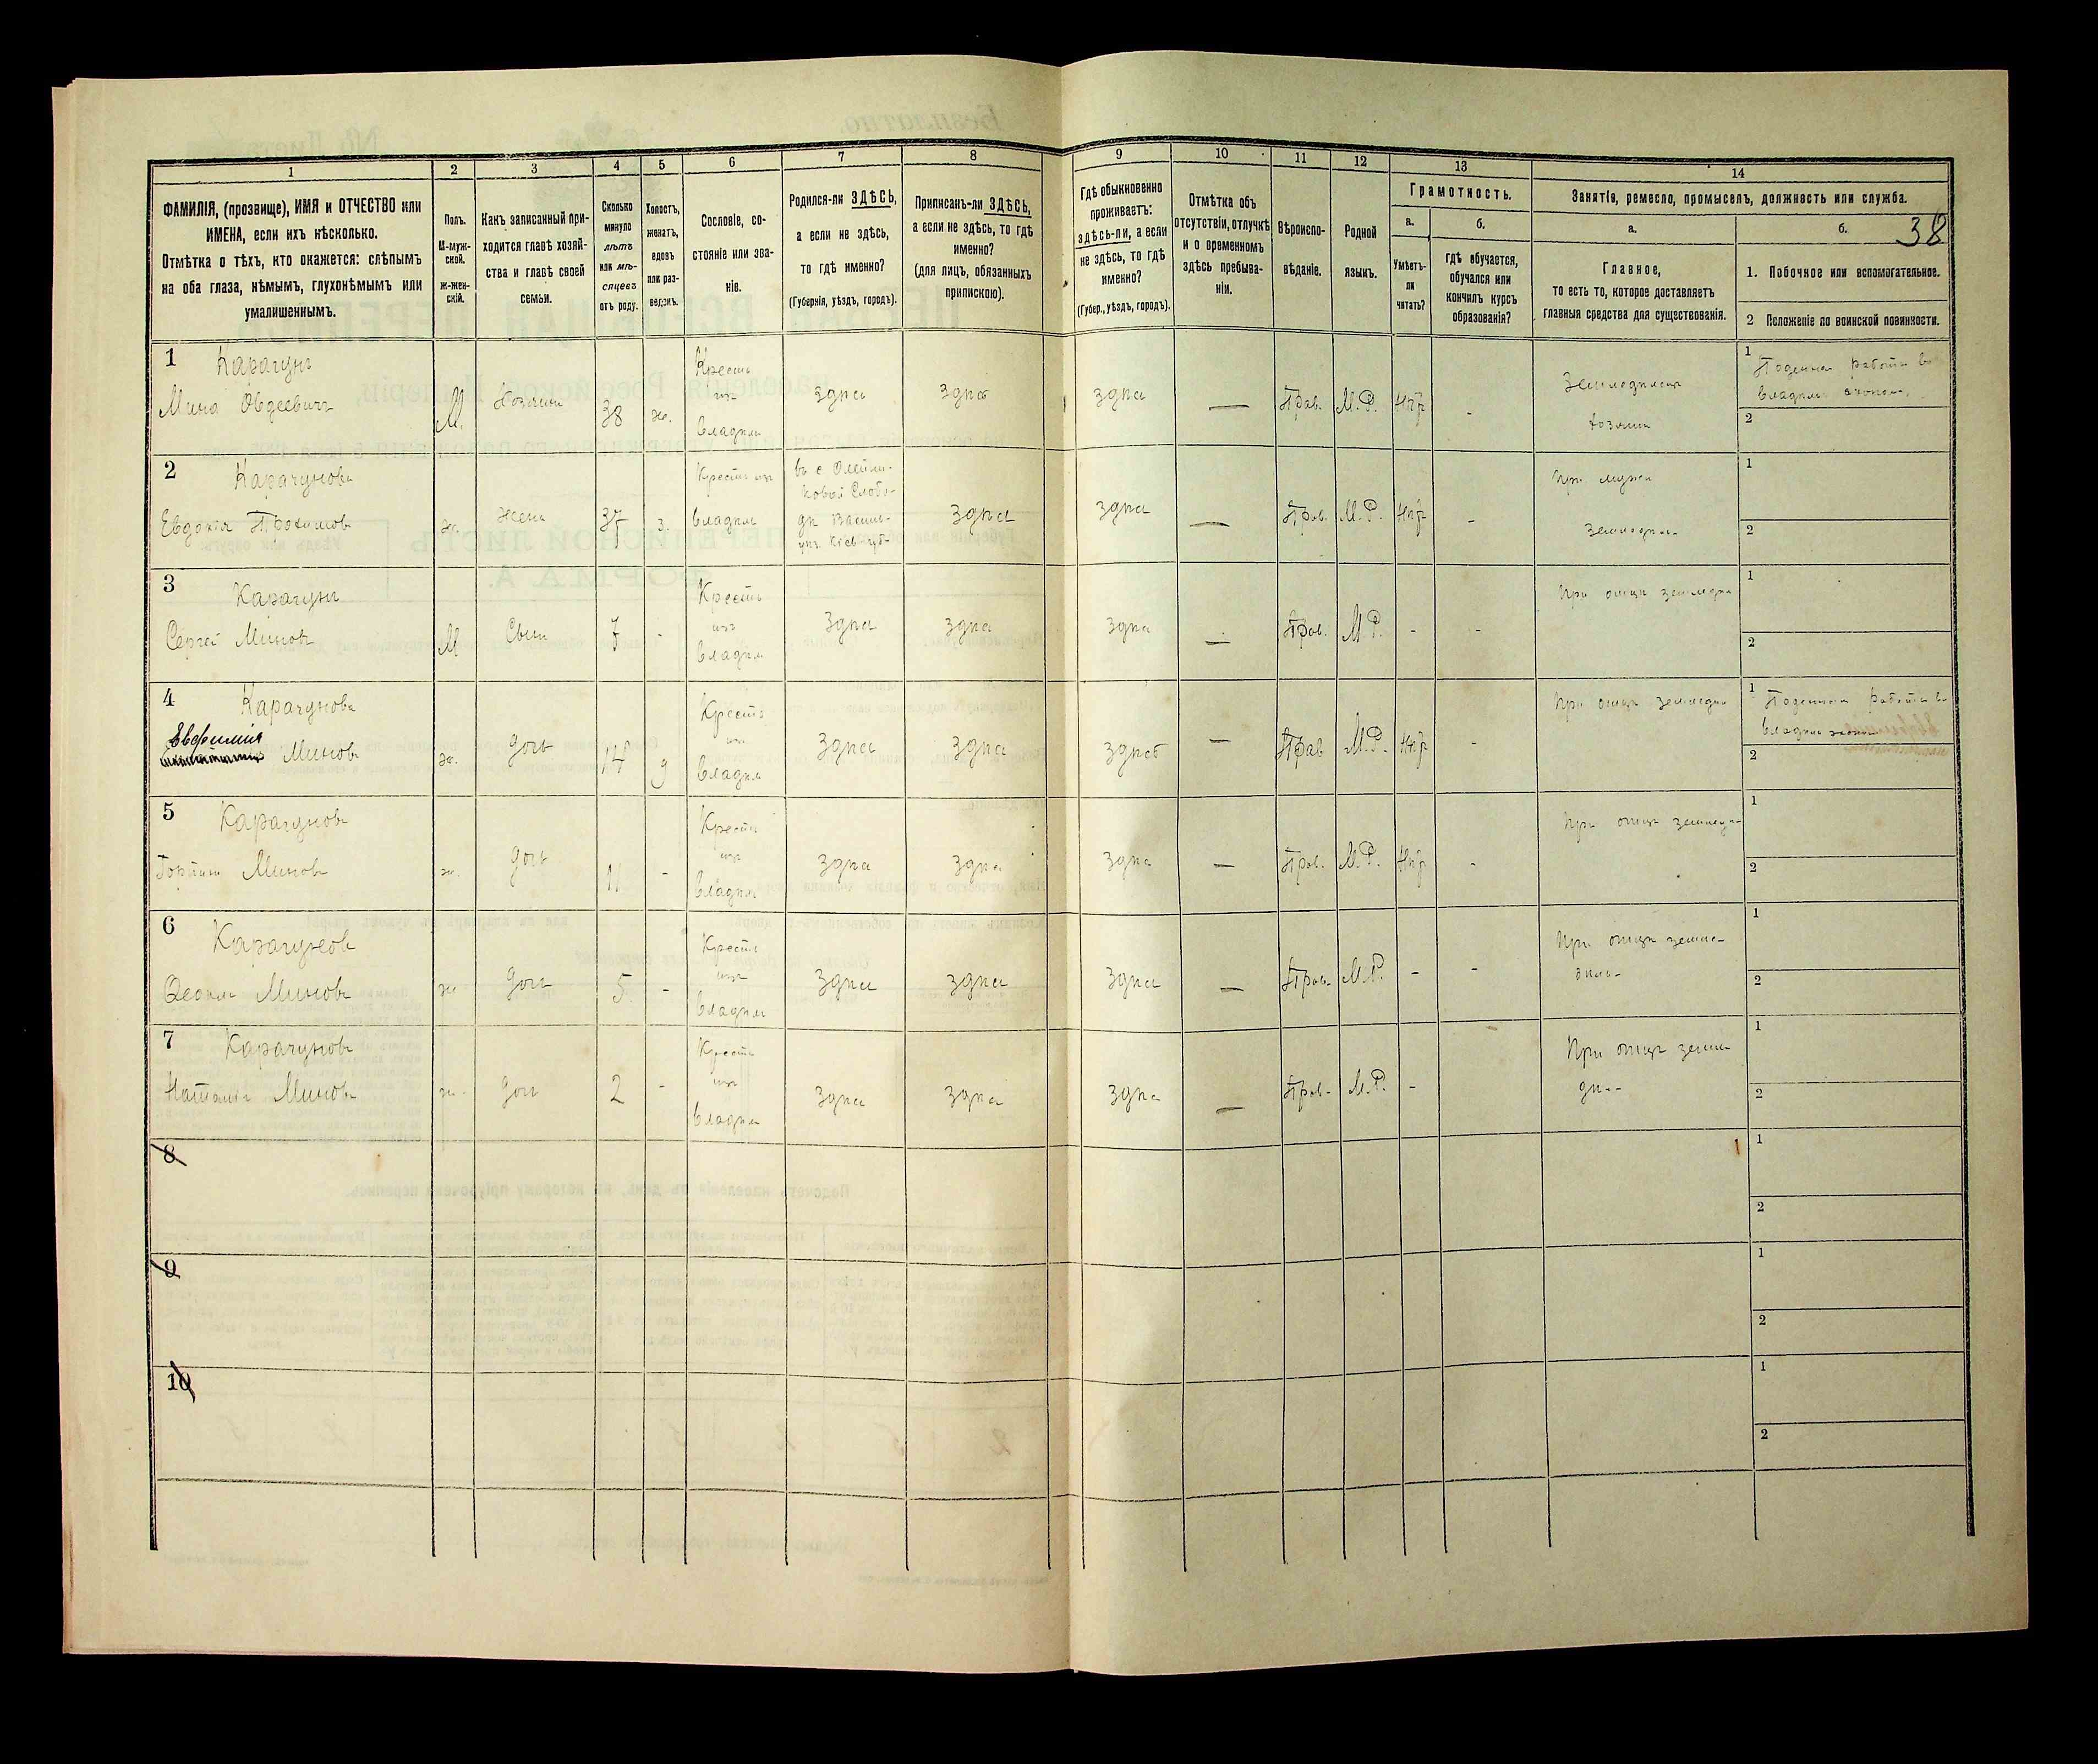 38
1
2
3
4
5
6
7
8
9
10
11
12
13
14
ФАМИЛІЯ, (прозвище), ИМЯ и ОТЧЕСТВО или
ИМЕНА, если ихъ нѣсколько.
Отмѣтка о тѣхъ, кто окажется: слѣпымъ
на оба глаза, нѣмымъ, глухонѣмымъ или
умалишеннымъ.
Полъ.
М-муж-
ской.
ж-жен-
скій.
Какъ записанный при-
ходится главѣ хозяй-
ства и главѣ своей
семьи.
Сколько
минуло
лѣтъ
или мѣ-
сяцевъ
отъ роду.
Холостъ,
женатъ,
вдовъ
или раз-
веденъ.
Сословіе, со-
стояніе или зва-
ніе.
Родился-ли ЗДѢСЬ,
а если не здѣсь,
то гдѣ именно?
(Губернія, уѣздъ, городъ).
Приписанъ-ли ЗДѢСЬ,
а если не здѣсь, то гдѣ
именно?
(для лицъ, обязанныхъ
припискою).
Гдѣ обыкновенно
проживаетъ:
здѣсь-ли, а если
не здѣсь, то гдѣ
именно?
(Губер., уѣздъ, городъ).
Отмѣтка объ
отсутствіи, отлучкѣ
и о временномъ
здѣсь пребыва-
ніи.
Вѣроиспо-
вѣданіе.
Родной
языкъ.
Грамотность.
а.
Умѣетъ-
ли
читать?
б.
гдѣ обучается,
обучался или
кончилъ курсъ
образованія?
Занятіе, ремесло, промыселъ, должность или служба.
а.
Главное,
то есть то, которое доставляетъ
главныя средства для существованія.
б.
1. Побочное или вспомогательное.
2 Положеніе по воинской повинности.
1
Карачунъ
Мина Овдеевичъ
М.
Хозяинъ
38
ж.
Крест.
изъ
владѣл
здѣсь
здѣсь
здѣсь
—
Прав.
М.Р.
Нѣт
-
Земледѣлецъ
хозяин
1
Поденная работа в
владѣл. эконом.
2
2
Карачунова
Евдокія Трохимов
ж.
жена
37
з.
Крест. изъ
владѣл
въ с Олейни-
ковой Слобо-
дѣ Василь-
уѣз. Кіев. губ.
здѣсь
здѣсь
—
Прав.
М.Р.
Нѣт
-
При мужѣ
земледѣл.
1
2
3
Карачунъ
Сергей Миновъ
М
Сынъ
7
-
Крест.
изъ
владѣл
здѣсь
здѣсь
здѣсь
—
Прав.
М.Р.
-
-
При отцѣ земледѣл
1
2
4
Карачунова
Евфимия
Минова
ж.
дочь
14
Крест.
изъ
владѣл
здѣсь
здѣсь
здѣсь
—
Прав
М.Р.
Нѣт
-
При отцѣ земледѣл
1
Поденная работа в
владѣл эконом
2
5
Карачунова
Минова
ж.
дочь
11
-
Крест.
изъ
владѣл
здѣсь
здѣсь
здѣсь
—
Прав.
М.Р.
Нѣт
-
При отцѣ земледѣ
1
2
6
Карачунов
Минова
ж
дочь
5
-
Крест.
изъ
владѣл
здѣсь
здѣсь
здѣсь
—
Прав.
М.Р.
-
-
При отцѣ земле-
дѣл-
1
2
7
Карачунова
Наталія Минова
ж.
дочь
2
-
Крест.
изъ
владѣл
здѣсь
здѣсь
здѣсь
—
Прав.
М.Р.
-
При отцѣ земле
дѣл-
1
2
8
1
2
9
1
2
10
1
2